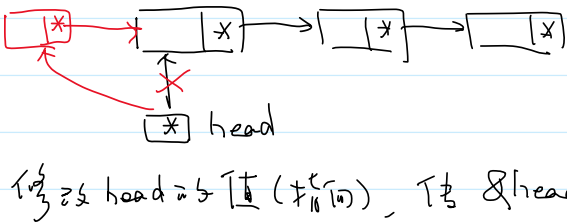 * * * *
* head
修改head的值(指向)、传&hea